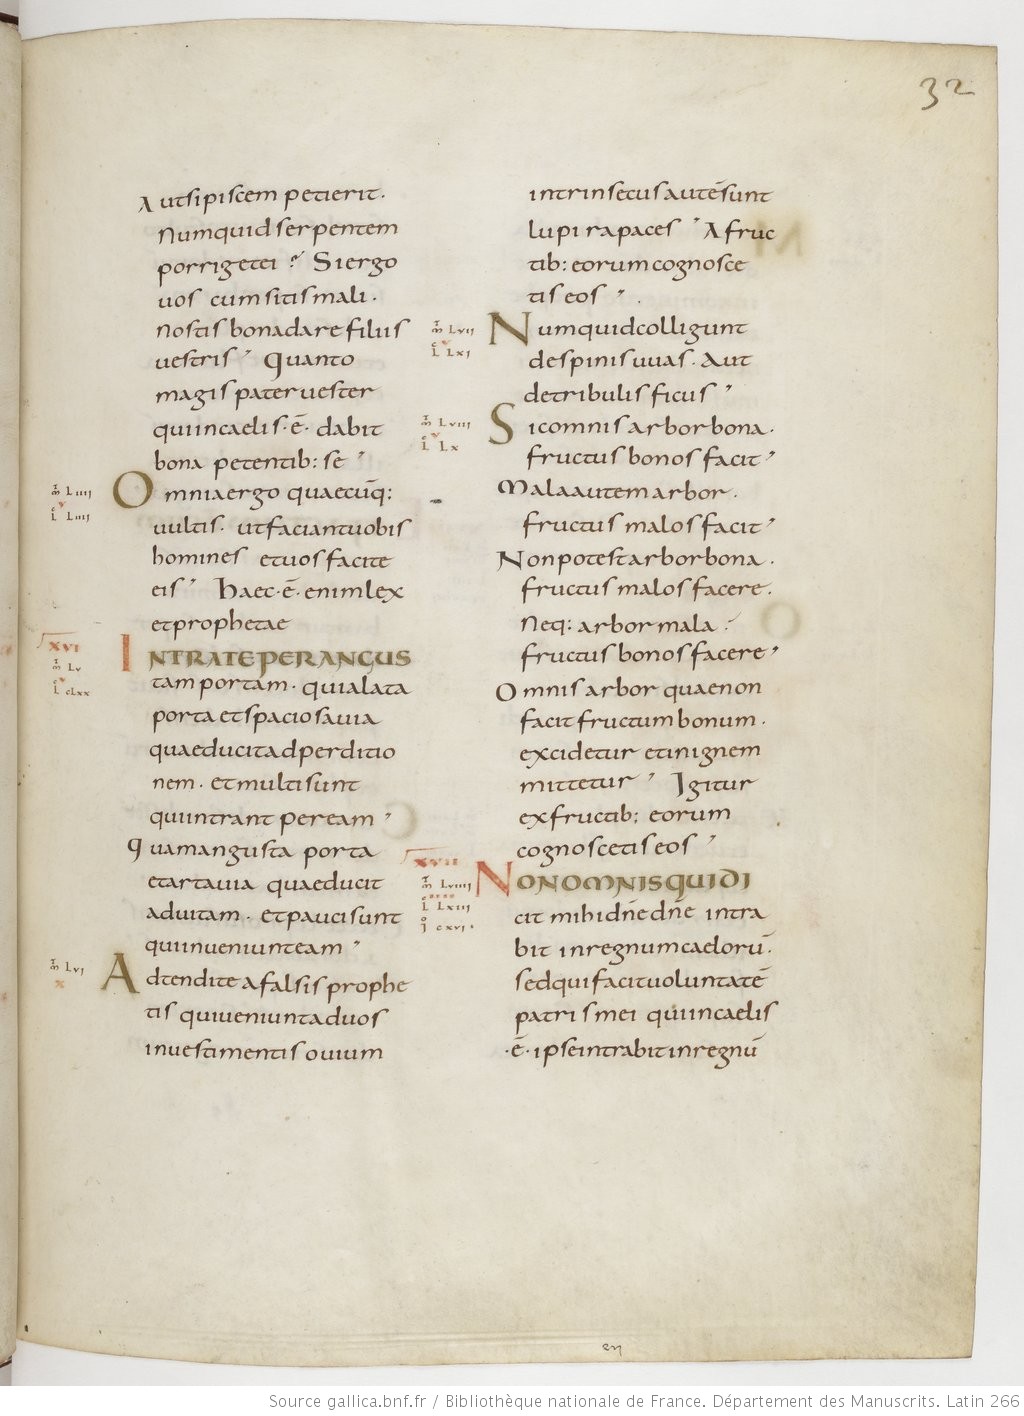 32
Aut si piscem petierit.
Numquid serpentem
porriget ei? Si ergo
uos cum sitis mali.
nostis bona dare filiis
uestris, Quanto
magis pater uester
qui in caelis · ē · dabit
bona petentib: se,
m̄ Liiii
L Liiij
Omnia ergo quaecūq:
uultis. ut faciant uobis
homines et uos facite
eis, Haec · ē · enim lex
et prophetae
XVI
m̄ Lv
L cLxx
INTRATE PER ANGUS
tam portam. quia lata
porta et spaciosa uia
quae ducit ad perditio
nem. et multi sunt
qui intrant per eam,
Quam angusta porta
et arta uia quae ducit
ad uitam. et pauci sunt
qui inueniunt eam,
m̄ Lvj
x
Adtendite a falsis prophe
tis qui ueniunt ad uos
in uestimentis ouium
intrinsecus autē sunt
lupi rapaces, A fruc
tib: eorum cognosce
tis eos,
m̄ Lvij
L Lxj
Numquid colligunt
de spinis uuas. Aut
de tribulis ficus,
m̄ Lviij
L Lx
Sic omnis arbor bona.
fructus bonos facit,
Mala autem arbor.
fructus malos facit,
Non potest arbor bona.
fructus malos facere.
Neq: arbor mala.
fructus bonos facere,
Omnis arbor quae non
facit fructum bonum.
excidetur et in ignem
mittetur, Igitur
ex fructib: eorum
cognoscetis eos,
XVII
m̄ Lviiij
L Lxiij
j cxvi.
NON OMNIS QUI DI
cit mihi dn̄e dn̄e intra
bit in regnum caelorū.
sed qui facit uoluntatē
patris mei qui in caelis
· ē · ipse intrabit in regnū
Source gallica.bnf.fr / Bibliothèque nationale de France. Département des Manuscrits. Latin 266